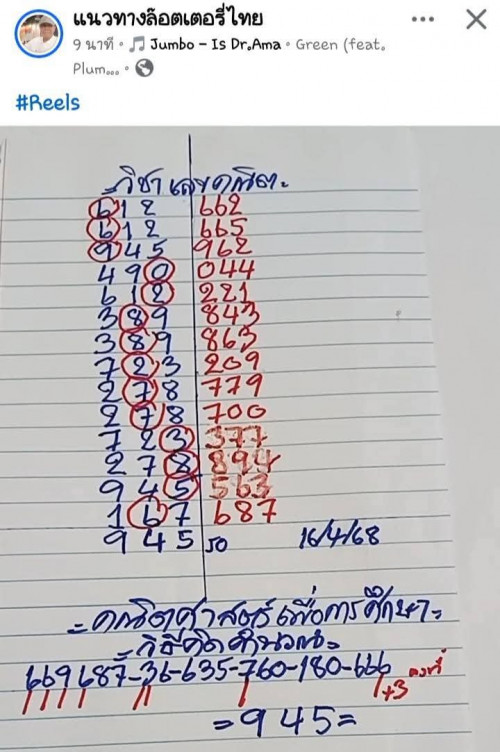 แนวทางล๊อตเตอรี่ไทย
9 นาที · Jumbo – Is Dr.Ama · Green (feat. Plum... ·
#Reels
=วิชาเลขคณิต=
612 662
612 665
945 962
490 044
612 221
389 843
389 863
723 209
278 779
278 700
723 377
278 894
945 563
167 687
945 รอ 16/4/68
=คณิตศาสตร์เพื่อการศึกษา=
=วิธีคิดคำนวณ=
669687-36-635-760-180-666
+3 คงที่
=945=